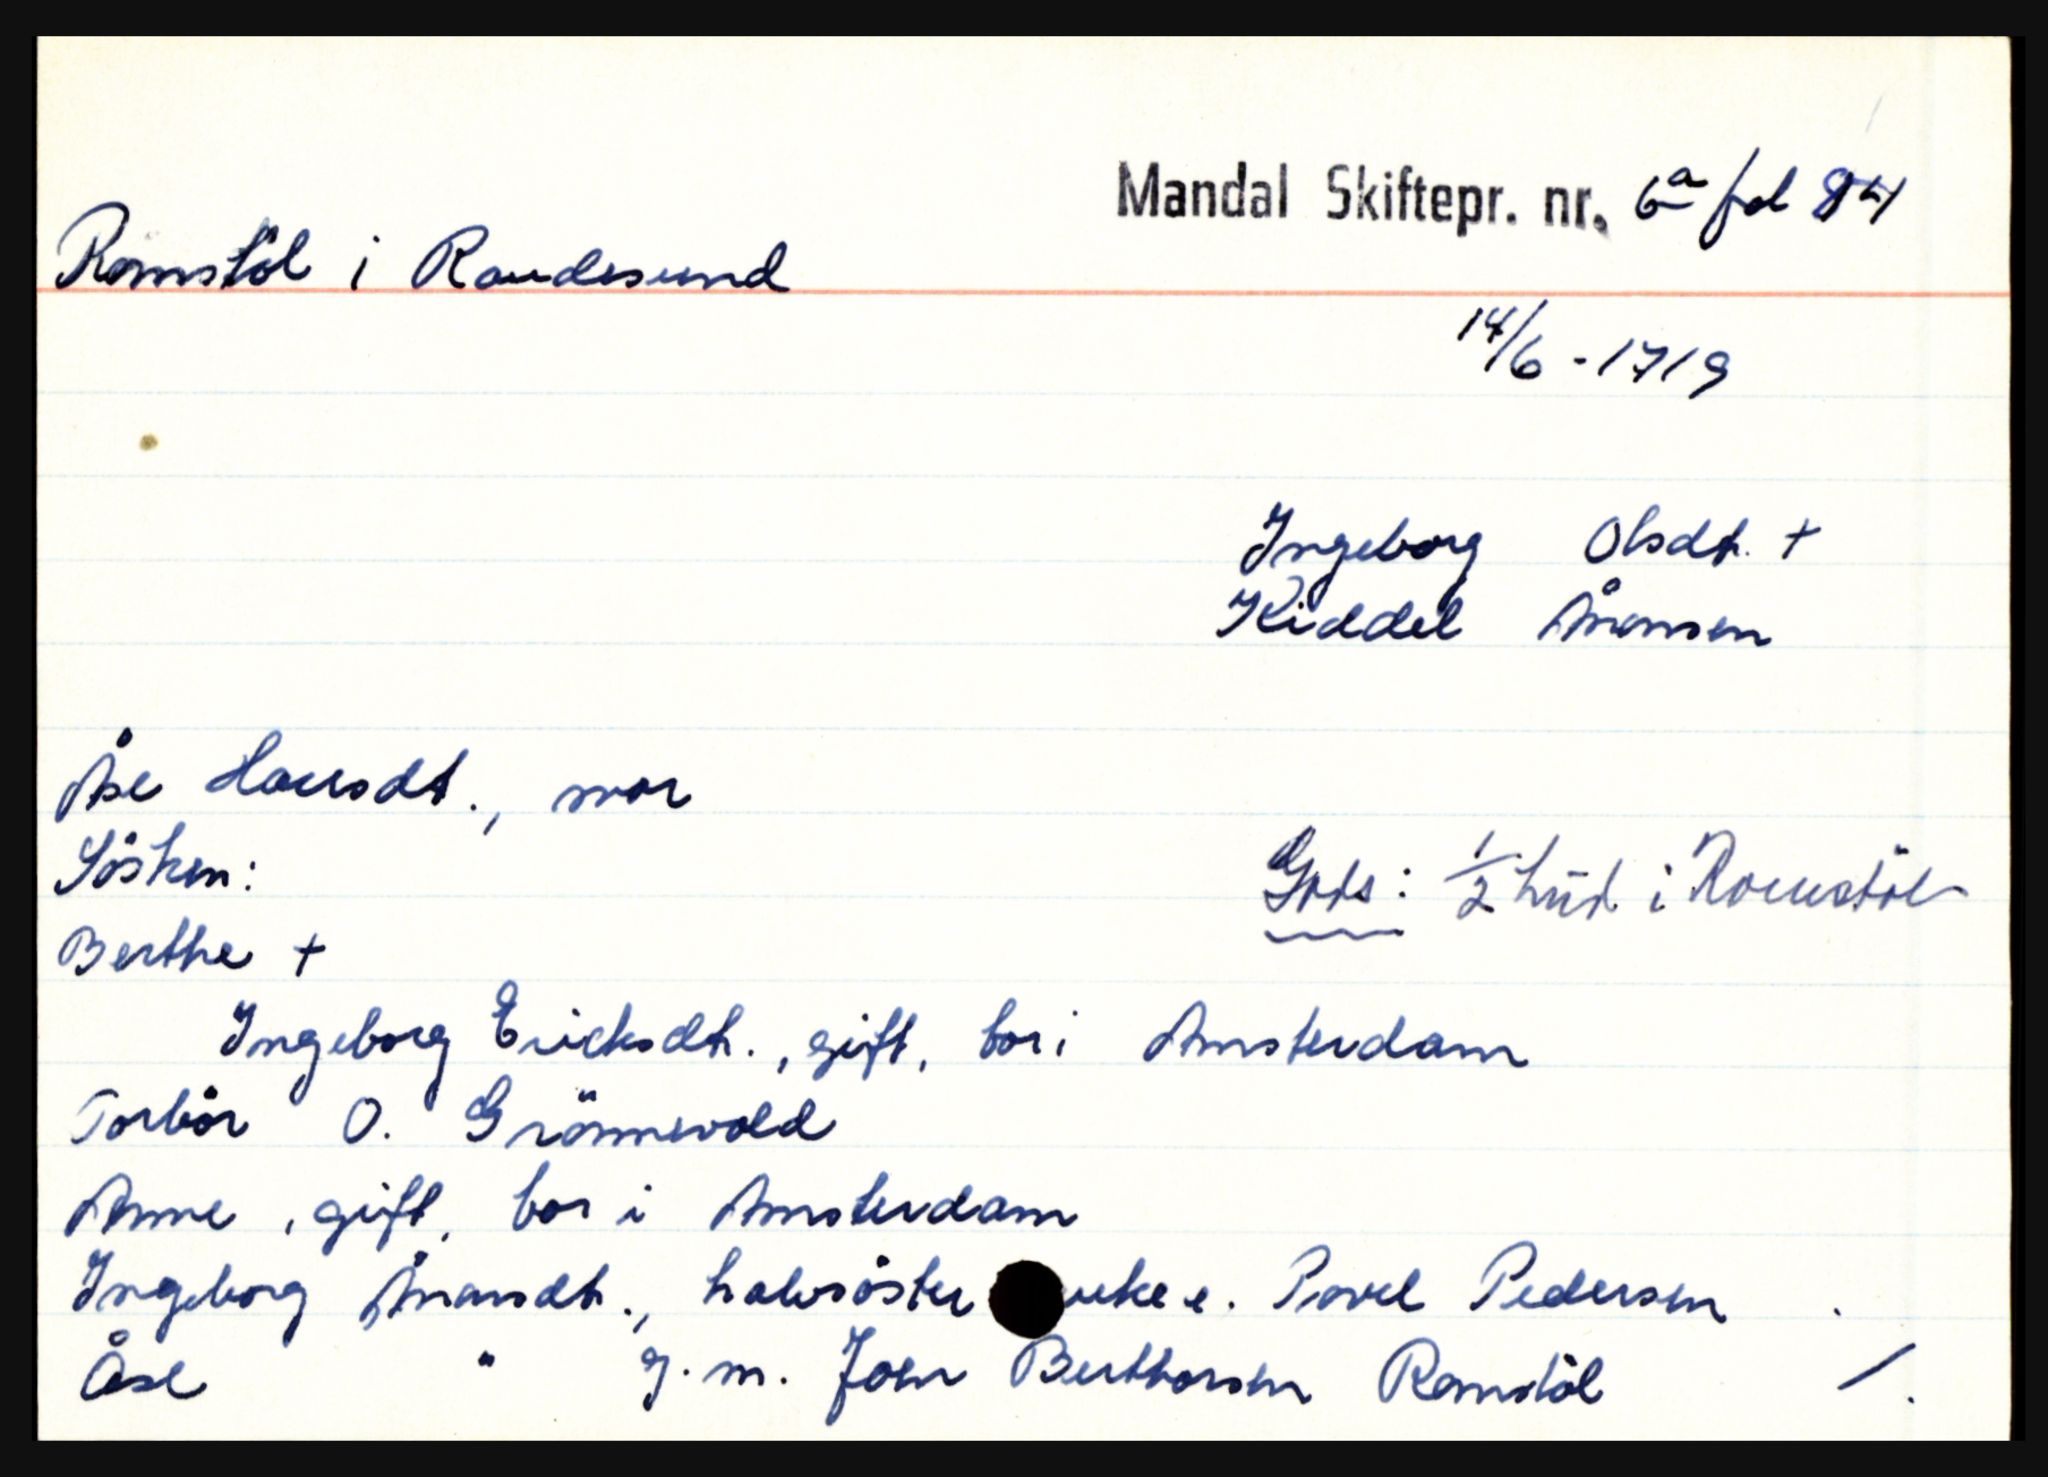 Mandal Skiftepr. nr. 6a fol 84
Romstöl i Randesund
14/6 - 1719
Ingeborg Olsdt. +
Kiddel Ånonsen
Åse Hansdt., mor
Sösken:
Gods: 1/2 hud i Romstöl
Berthe +
Ingeborg Ericksdt., gift, bor i Amsterdam
Torbör O. Grönnevold
Anne, gift, bor i Amsterdam
Ingeborg Ånonsdt., halvsöster enke e. Povel Pedersen
Åse " g. m. Joen Berthorsen Romstöl /.